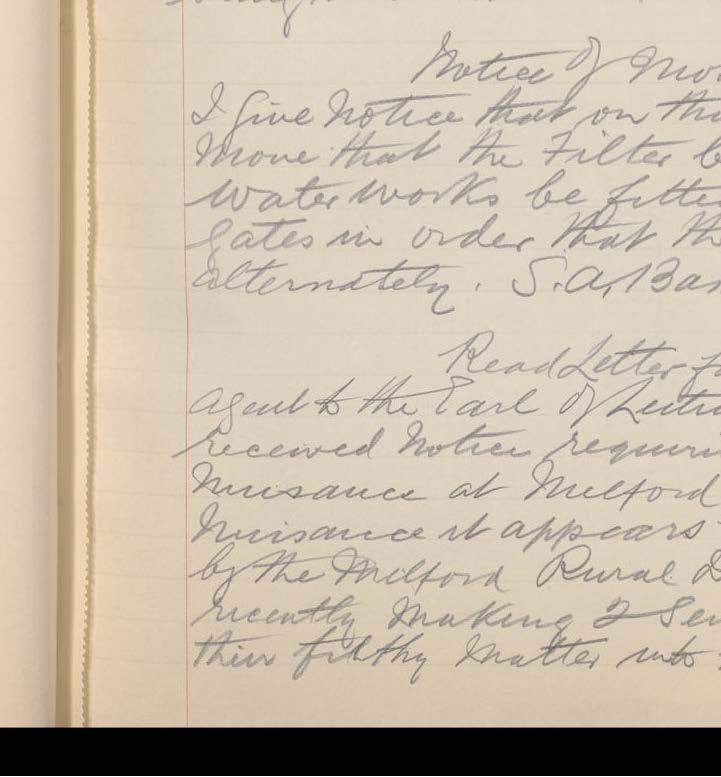 Notice of Mo
I Give Notice that on th
Move that the Filter b
Water Works be fitte
gates in order that th
alternately. S. A. Bar
Read Letter f
agent to the Earl of Leitr
received Notice requiri
Nuisance at Milford
Nuisance it appears
by the Milford Rural D
recently making 2 Sew
their filthy matter into